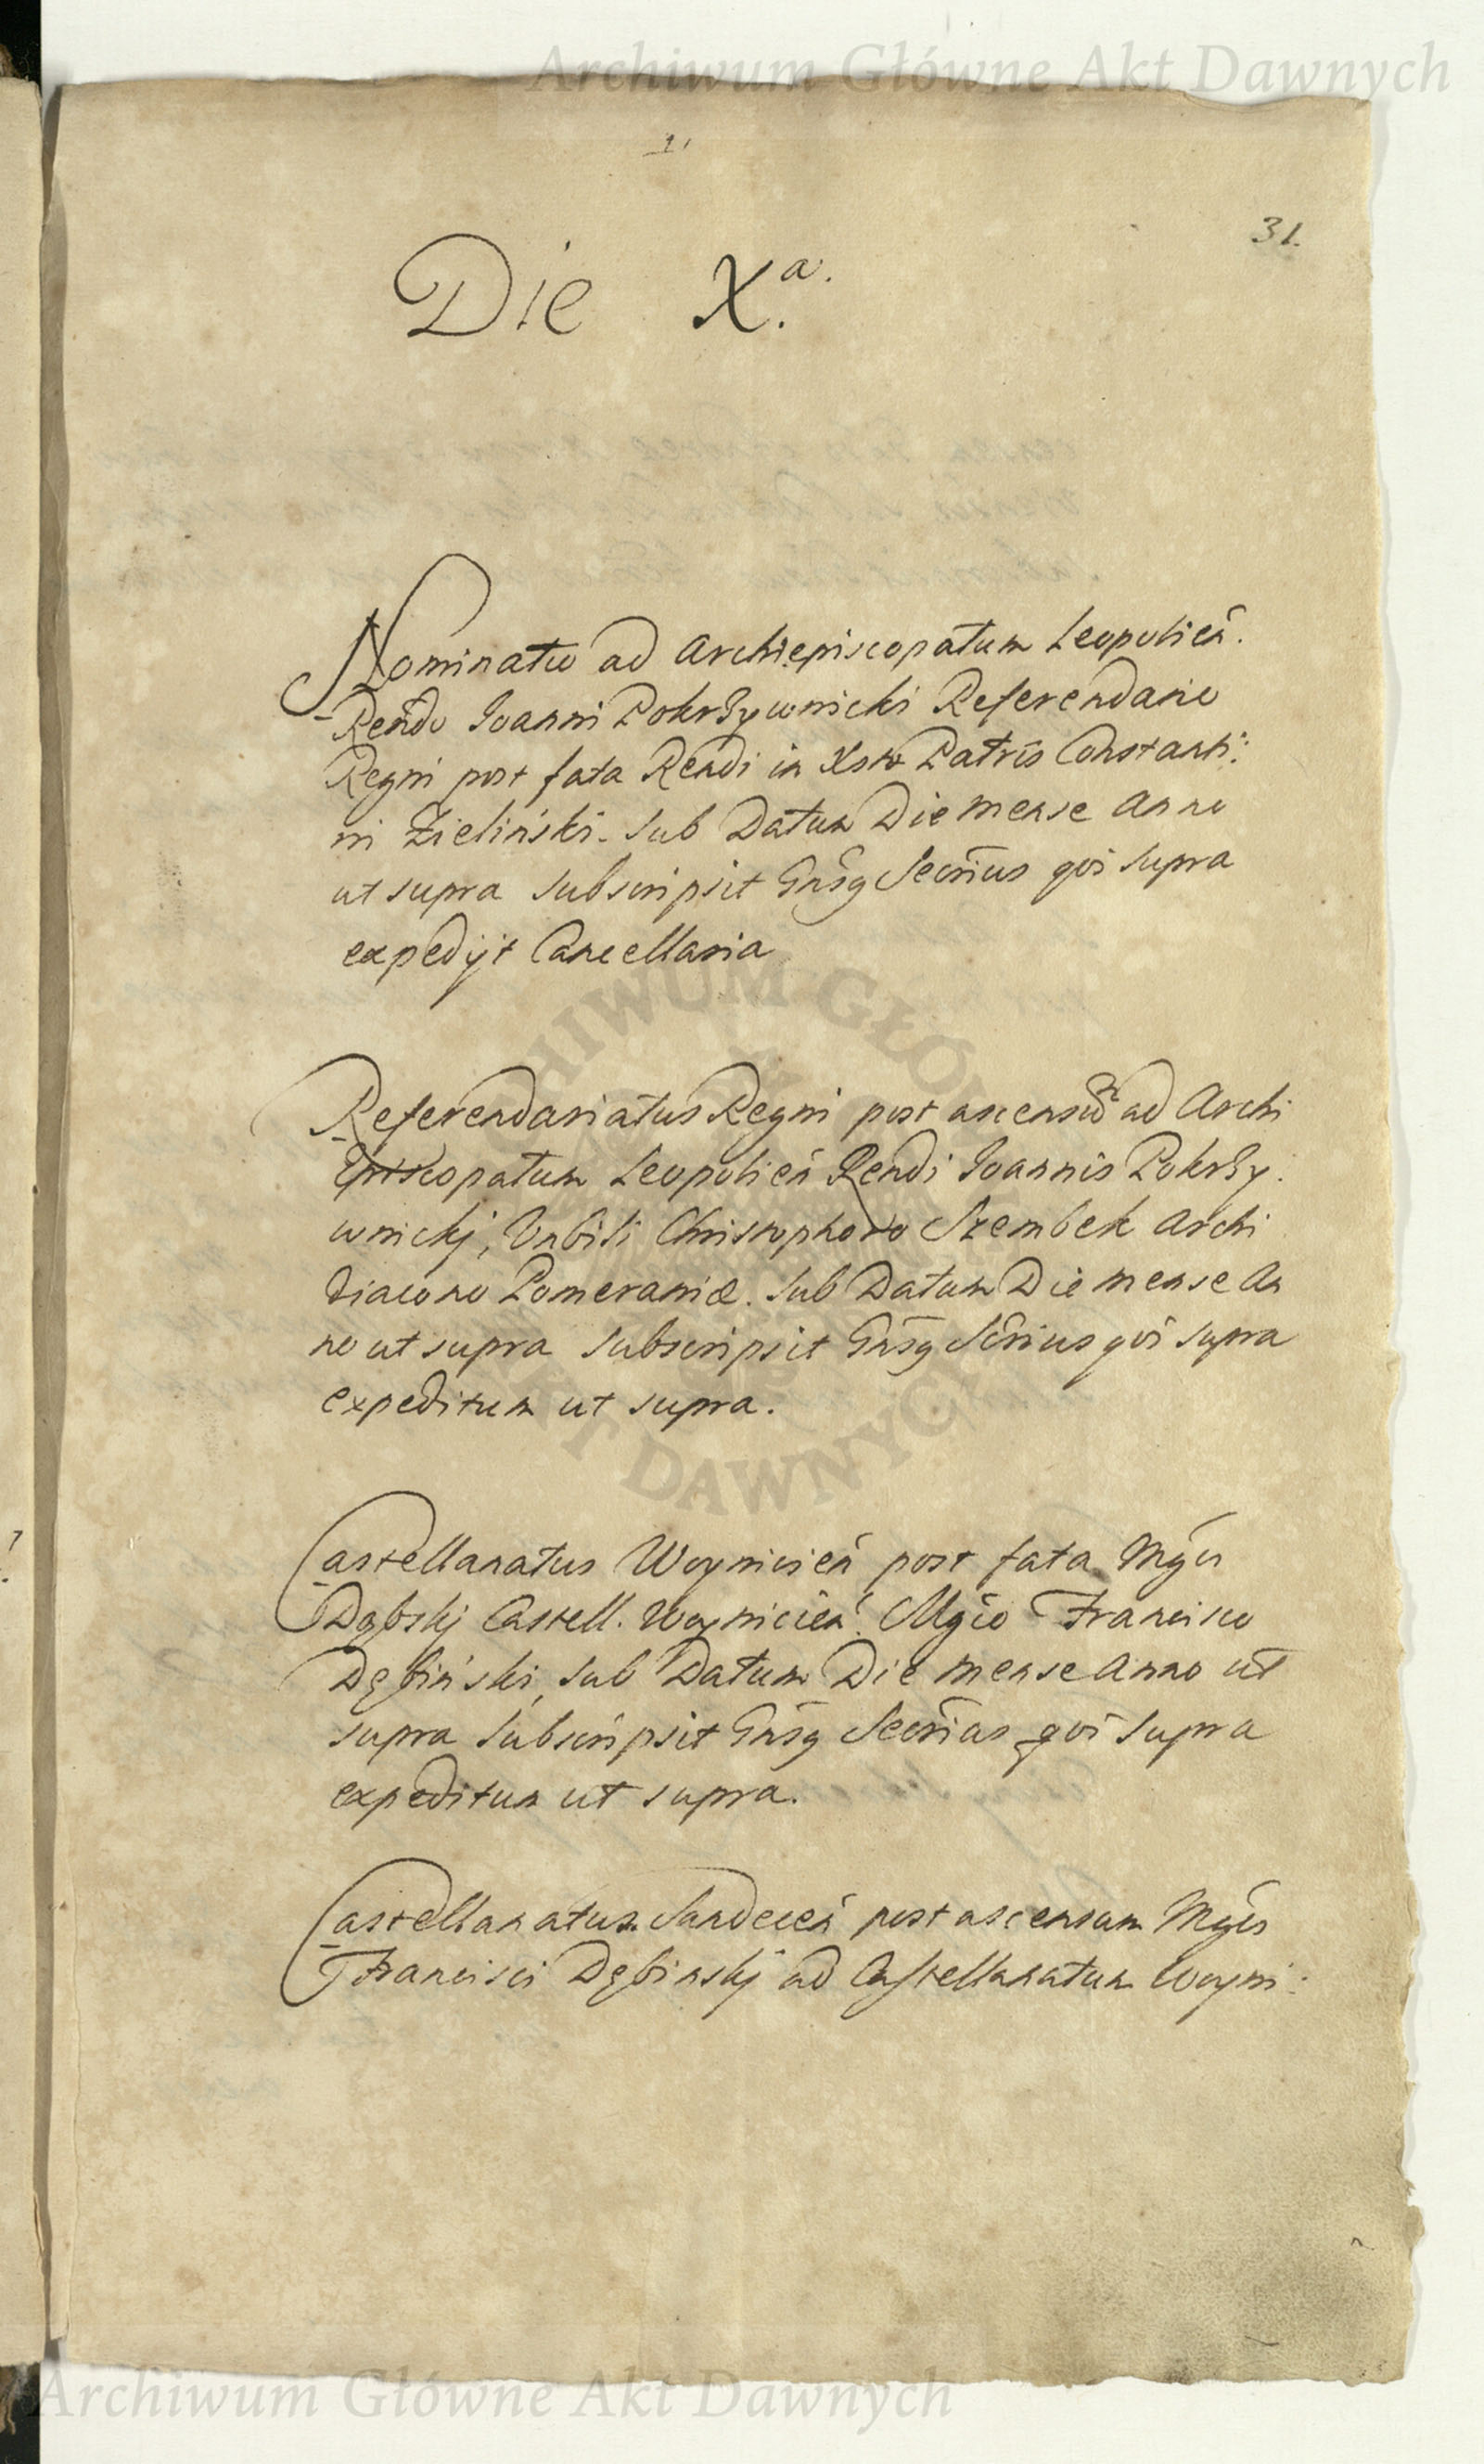 Archiwum Główne Akt Dawnych
31.
Die X.ª
Nominatio ad Archiepiscopatum Leopolień.
Rendo Joanni Pokrzywnicki Referendario
Regni post fata Rendi in Xsto Patris Constanti:
ni Zieliński. Sub Datum Die Mense Anno
ut supra subscripsit Secrius qui supra
expedijt Cancellaria
Referendariatus Regni post ascensū ad Archi
Episcopatum Leopolień Rendi Joannis Pokrzy:
wnickj, Vrbili Christophoro Szembek Archi
diacono Pomeraniæ. Sub Datum Die Mense An
no ut supra subscripsit Scrius qui supra
expeditum ut supra.
Castellanatus Woynicień post fata Mgci
Dąbskj Castell. Woynicień. Mgco Francisco
Dębiński, sub Datum Die Mense Anno ut
supra subscripsit Secrius qui supra
expeditum ut supra.
Castellanatus Sandecen post ascensum Mgci
Francisci Dębinskj ad Castellanatum Woyni:
ARCHIWUM GŁÓWNE AKT DAWNYCH
Archiwum Główne Akt Dawnych